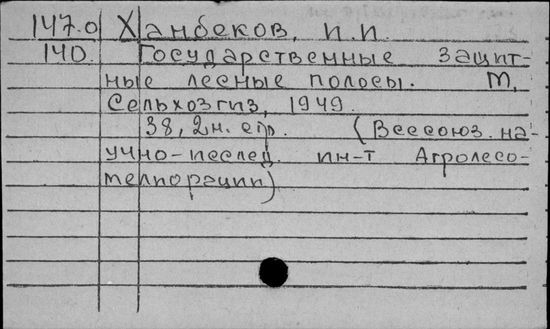 147.0 Ханбеков, И.И.
140. Государственные защит-
ные лесные полосы. М,
Сельхозгиз, 1949.
38, 2н. стр. (Всесоюз. на-
учно-исслед. ин-т Агролесо-
мелиорации)